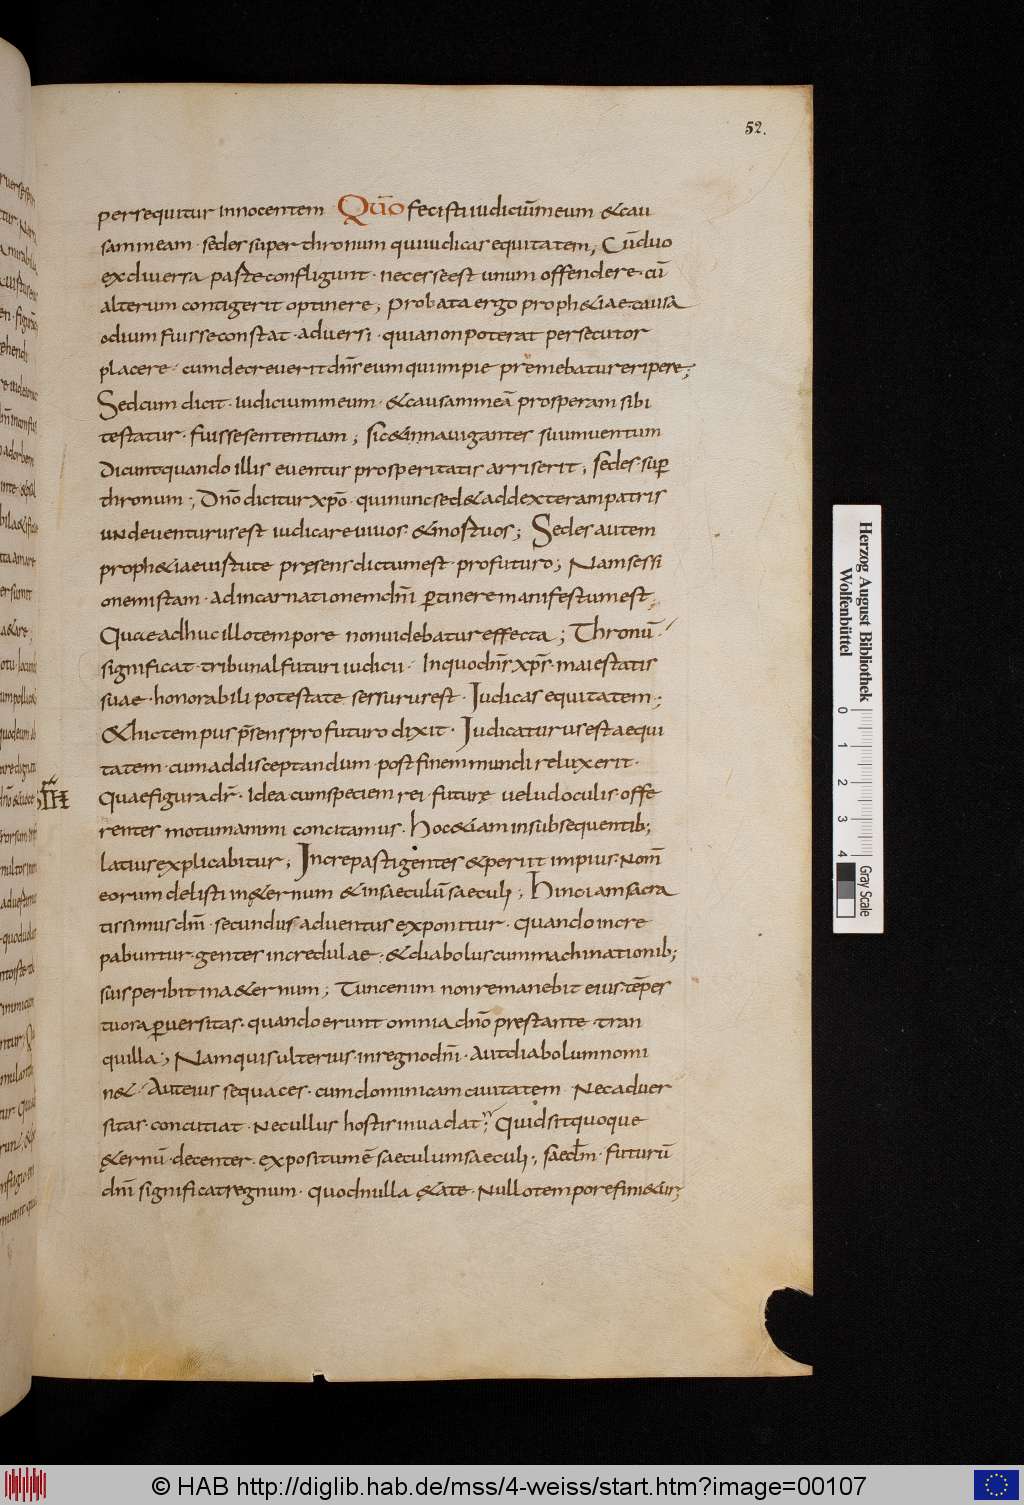 52.
persequitur innocentem Qūo fecisti iudiciū meum &cau
sam meam · sedes super thronum qui iudicas equitatem; Cū duo
ex diuersa parte confligunt · necesse est unum offendere · cū
alterum contigerit optinere; Probata ergo proph&iae causa
odium fuisse constat · aduersi · quia non poterat persecutor
placere · cum decreuerit dn̄s eum qui impie premebatur eripere;
Sed cum dicit · iudicium meum · &causam meā prosperam sibi
testatur · fuisse sententiam; sic & innauigantes suum uentum
Dicunt quando illis euentus prosperitatis arriserit; sedes · sup̄
thronum; Dn̄o dicitur xp̄o · qui nunc sed& ad dexteram patris
unde uenturus est iudicare uiuos · & mortuos; Sedes autem
proph&iae uirtute pręsens dictum est · pro futuro; Nam sessi
onem istam · ad incarnationem dn̄i ꝑtinere manifestum est;
Quae adhuc illo tempore non uidebatur effecta; Thronū ·
significat · tribunal futuri iudicii · In quo dn̄s xp̄s · maiestatis
suae · honorabili potestate sessurus est · Iudicas equitatem;
& hic tempus p̄sens pro futuro dixit · Iudicaturus est aequi
tatem · cum ad disceptandum · post finem mundi reluxerit ·
Quae figura dr̄ · Idea cum speciem rei · futurę uelud oculis · offe
rentes motum animi concitamus · Hoc &iam in subsequentib;
latius explicabitur; Increpasti gentes & periit impius · Nom̄
eorum delisti in &ernum & in saeculū saeculi; Hinc iam sacra
tissimus dn̄i · secundus aduentus exponitur · quando incre
pabuntur · gentes incredulae · & diabolus cum machinationib;
suis peribit in a&ernum; Tunc enim non remanebit eius tēpes
tuora ꝑuersitas · quando erunt omnia dn̄o prestante · tran
quilla; Nam quis ulterius · in regno dn̄i · aut diabolum nomi
n& · Aut eius sequaces · cum dominicam ciuitatem · Nec aduer
sitas · concutiat · Nec ullus hostis inuadat; Quid sit quoque
&ernū · decenter · expositum ē saeculum saeculi; saecl̄m · futurū
dn̄i significat regnum · quod nulla ę&ate · Nullo tempore fini&ur;
Herzog August Bibliothek
Wolfenbüttel
0 1 2 3 4
Gray Scale
© HAB http://diglib.hab.de/mss/4-weiss/start.htm?image=00107